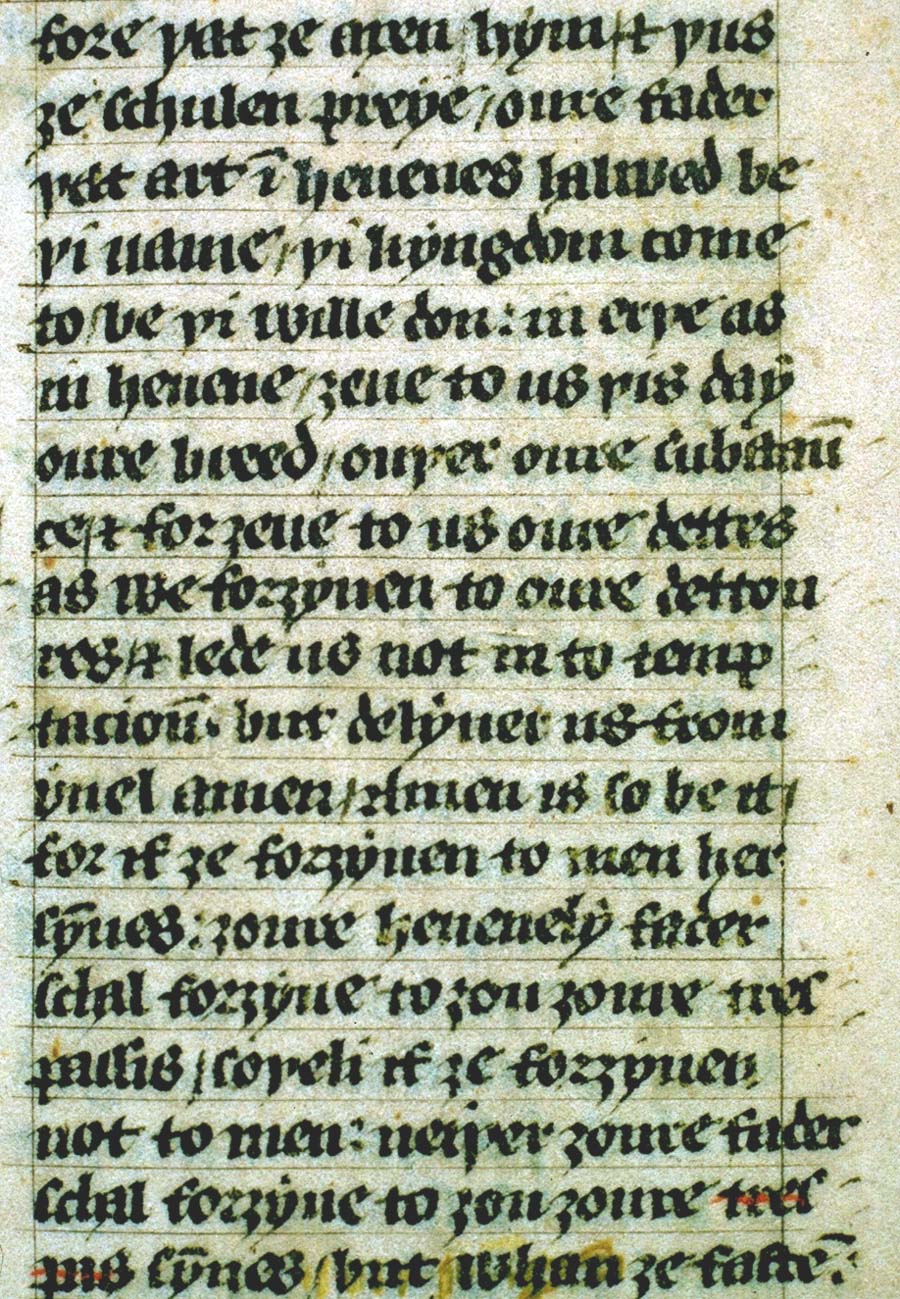 fore þat ȝe axen hym / & þus
ȝe schulen preye / oure fader
þat art ī heuenes halwed be
þi name / þi kyngdom come
to / be þi wille don: in erþe as
in heuene / ȝeue to us þis day
oure breed / ouþer oure substaū
ce / & forȝeue to us oure dettes
as we forȝyuen to oure dettou
res / & lede us not in to temp
tacioū. but delyuer us from
yuel amen / Amen is so be it /
for if ȝe forȝyuen to men her
sȳnes: ȝoure heuenely fader
schal forȝyue to ȝou ȝoure tres
passis / soþeli if ȝe forȝyuen
not to men: neiþer ȝoure fader
schal forȝyue to ȝou ȝoure tres
sȳnes / but whan ȝe fastē: